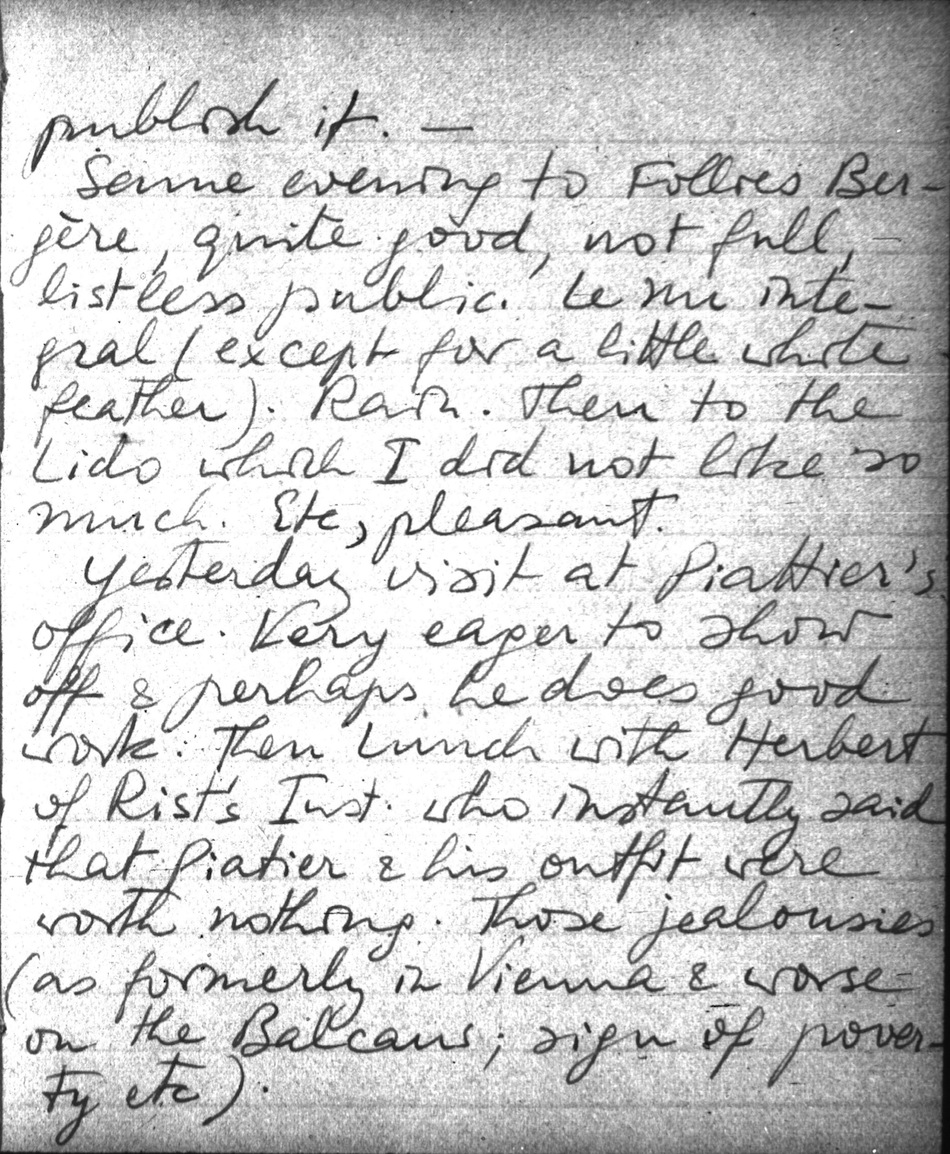 publish it. —
Same evening to Follies Ber-
gère, quite good, not full, -
listless public. Le nu inte-
gral (except for a little white
feather). Rain. Then to the
Lido which I did not like so
much. Etc, pleasant.
Yesterday visit at Piattier's
office. Very eager to show
off & perhaps he does good
work. Then Lunch with Herbert
of Rist's Inst. who instantly said
that Piatier & his outfit were
worth nothing. Those jealousies
(as formerly in Vienna & worse
on the Balcans; sign of pover-
ty etc).